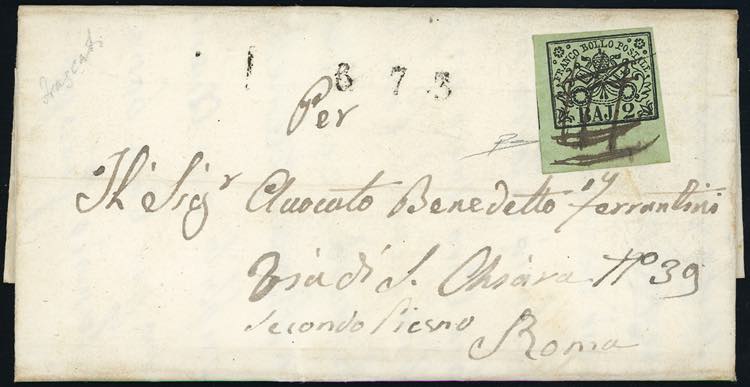 Frascati
1 6 7 3
FRANCO BOLLO POSTALE
BAJ 2
Per
Il Sigr Avvocato Benedetto Ferrantini
Via di S. Chiara No 39
Secondo Piesno
Roma